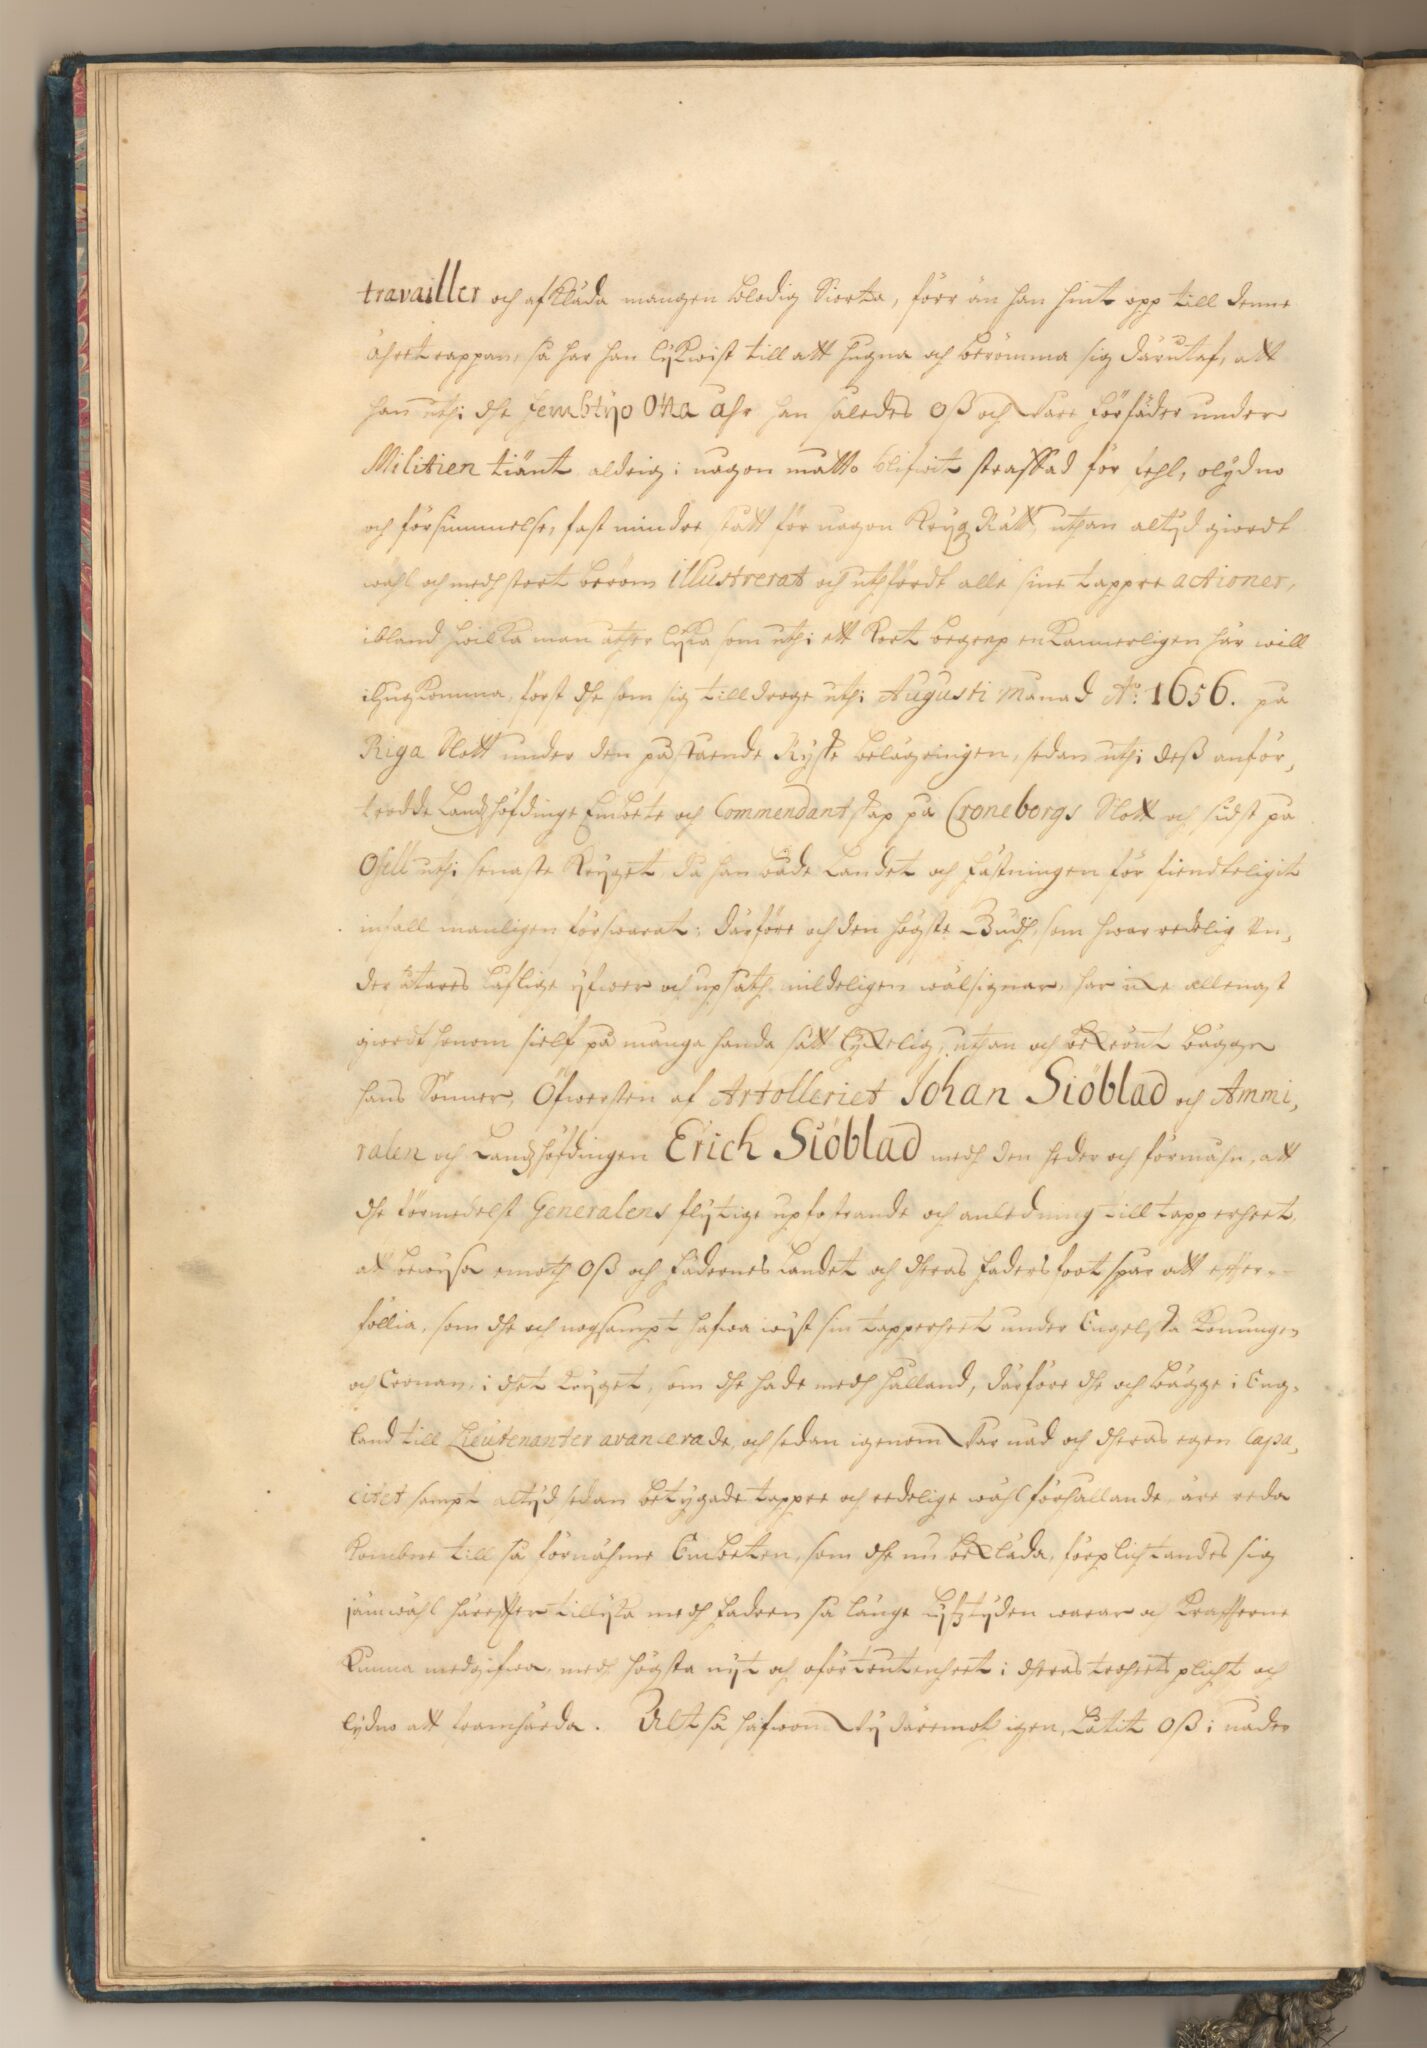 travailler och afklädа mangen blodig Siorta, förr än han hint opp till denne
ähretrappan, så har han lykwist till att hugna och berömma sig därutaf, att
han uthi dhe fembtyo Otta åhr han således Oß och Våre Förfäder under
Militien tiänt aldrig i någon matto blifwit straffad för fehl, olydno
och försummelse, fast mindre stått för någon KrygzRätt, uthan altyd giordt
wähl och medh stort beröm illustrerat och uthfördt alle sine tappre actioner,
ibland hwilka man åther lyka som uthi ett kort begrep enkannerligen här will
ihugkomma, först dhe som sig tilldroge uthi Augusti Månad Ao: 1656. på
Riga Slott under den påstaende Ryske belägringen, sedan uthi deß anför,
trodde Landzhöfdinge Embete och Commendantskap på Croneborgs Slott och sidst på
Ösell uthi senaste Kryget, då han både Landet och Fästningen för fiendteligit
infall manligen förswarat; därföre och den högste Gudh, som hwar redelig Un,
dersåtares laflige yfwer och upsåth mildeligen wälsignar, har icke allenast
giordt honom sielf på mångahanda sätt lyckelig, uthan och bekrönt bägge
hans Sönner, Öfwersten af Artolleriet Johan Siöblad och Ammi,
ralen och Landzhöfdingen Erich Siöblad medh den heder och förmåhn, att
dhe förmedelst Generalens flytige upfostrande och anledning till tapperheet,
att bewysa emoth Oß och Fädernes Landet och dheras Faders foot spår att effter-
föllia, som dhe och nogsampt hafwa wyst sin tapperheet under Engelska Konungen
och Cronan, i dhet kryget, som dhe hade medh Halland, därföre dhe och bägge i Eng,
land till Lieutenanter avancerade, och sedan igenom Vår nåd och dheras egen Capa,
citet sampt altyd sedan betygade tappre och redelige wähl förhallande, äre reda
kombne till så förnähme Embeten, som dhe nu bekläda, förplichtandes sig
jämwähl häreffter tillyka medh Fadren så länge Lyfztyden warar och Krafferne
kunna medgifwa, medh högsta nyt och oförtrutenheet i dheras troheetsplicht och
lydno att framhärda. Altså hafwom Vy däremot igen, Låtit Oß i nåder